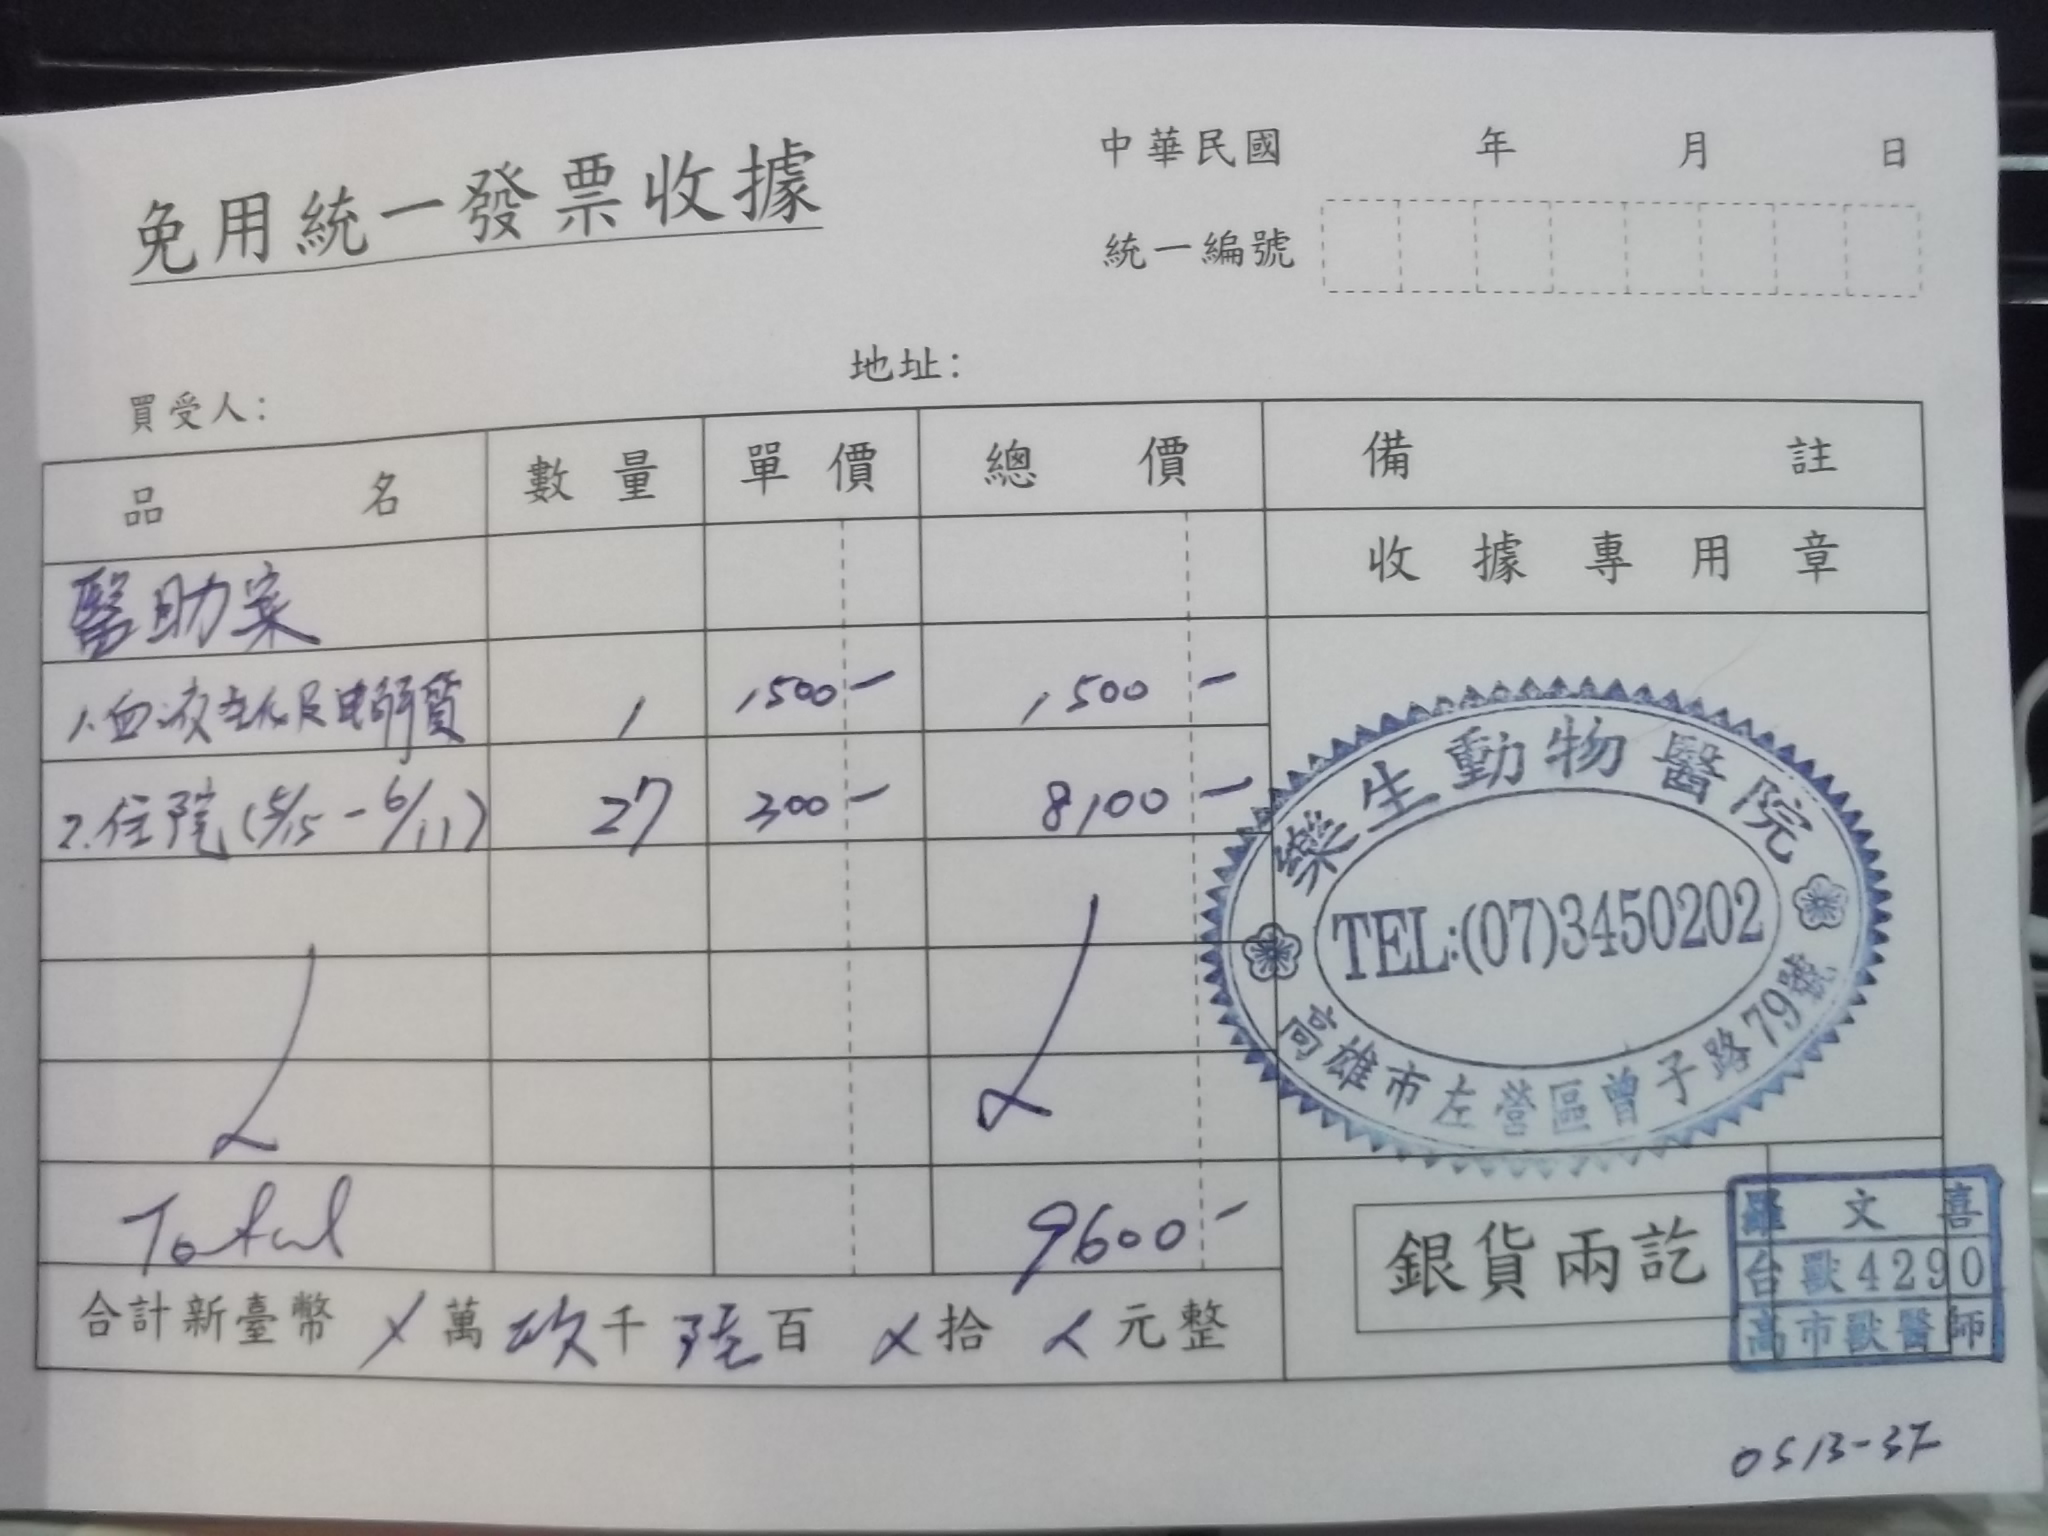 免用統一發票收據
中華民國 年 月 日
統一編號
買受人: 地址:
品名 數量 單價 總價 備註
收據專用章
醫助案
1.血液生化及電解質 1 1,500- 1,500-
2.住院(5/15-6/11) 27 300- 8,100-
樂生動物醫院
TEL:(07)3450202
高雄市左營區曾子路79號
Total 9600-
合計新臺幣 萬 玖千 陸百 拾 元整
銀貨兩訖
羅文喜
台獸4290
高市獸醫師
0513-37